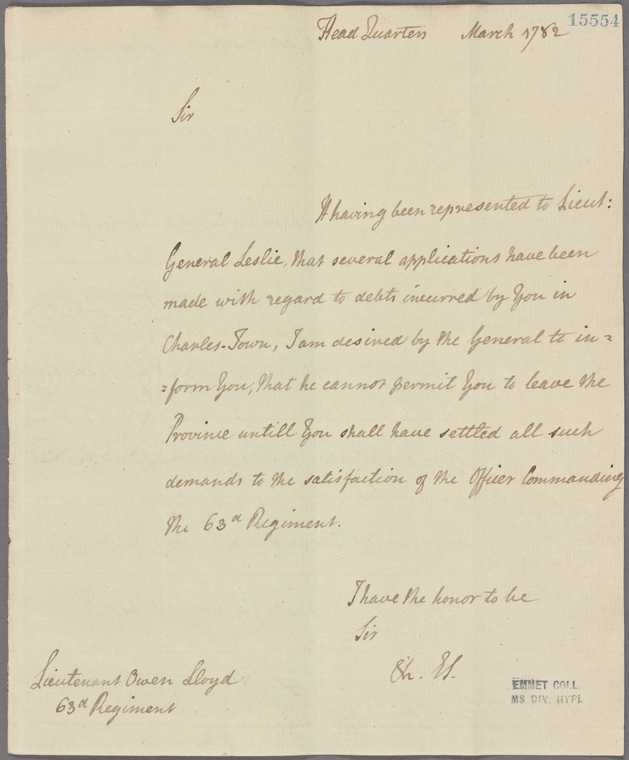 Head Quarters March 1782 15554
Sir
It having been represented to Lieut:
General Leslie, that several applications have been
made with regard to debts incurred by You in
Charles-Town, I am desired by the General to in=
=form You, that he cannot permit You to leave the
Province untill You shall have settled all such
demands to the satisfaction of the Officer Commanding
the 63d Regiment.
I have the honor to be
Sir
&c.
Lieutenant Owen Lloyd
63d Regiment
EMMET COLL.
MS DIV. NYPL